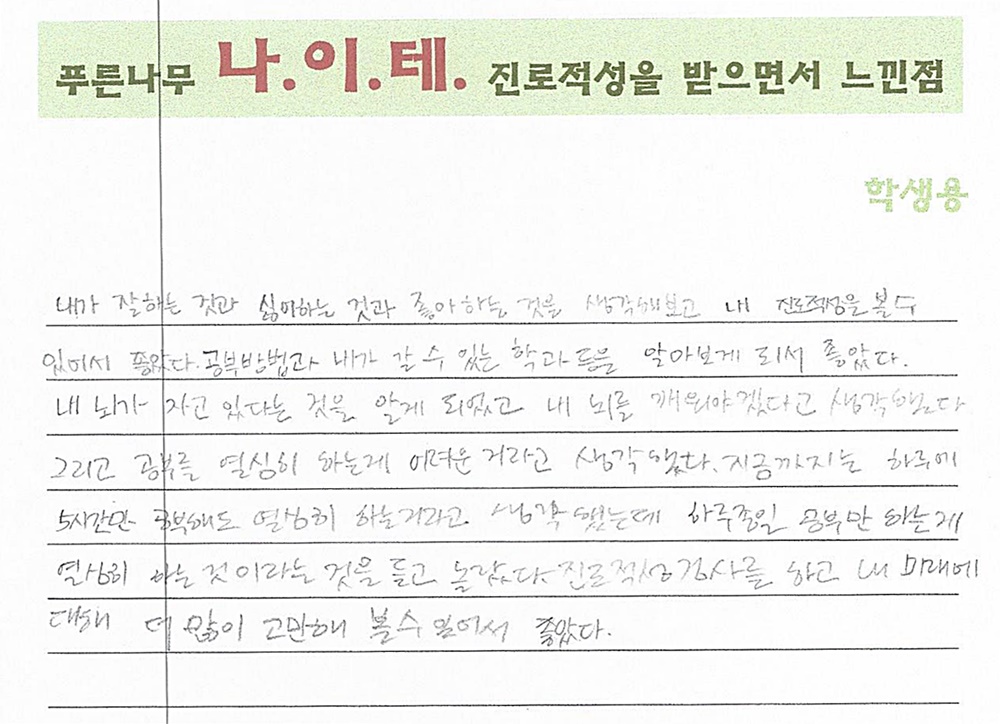 푸른나무 나.이.테. 진로적성을 받으면서 느낀점
학생용
내가 잘하는 것과 싫어하는 것과 좋아하는 것을 생각해보고 내 진로적성을 볼수
있어서 좋았다. 공부방법과 내가 갈 수 있는 학과등을 알아보게 되서 좋았다.
내 뇌가 자고 있다는 것을 알게 되었고 내 뇌를 깨워야겠다고 생각했다
그리고 공부를 열심히 하는게 어려운 거라고 생각했다. 지금까지는 하루에
5시간만 공부해도 열심히 하는거라고 생각했는데 하루종일 공부만 하는게
열심히 하는 것이라는 것을 듣고 놀랐다. 진로적성검사를 하고 내 미래에
대해 더 많이 고민해 볼수 있어서 좋았다.